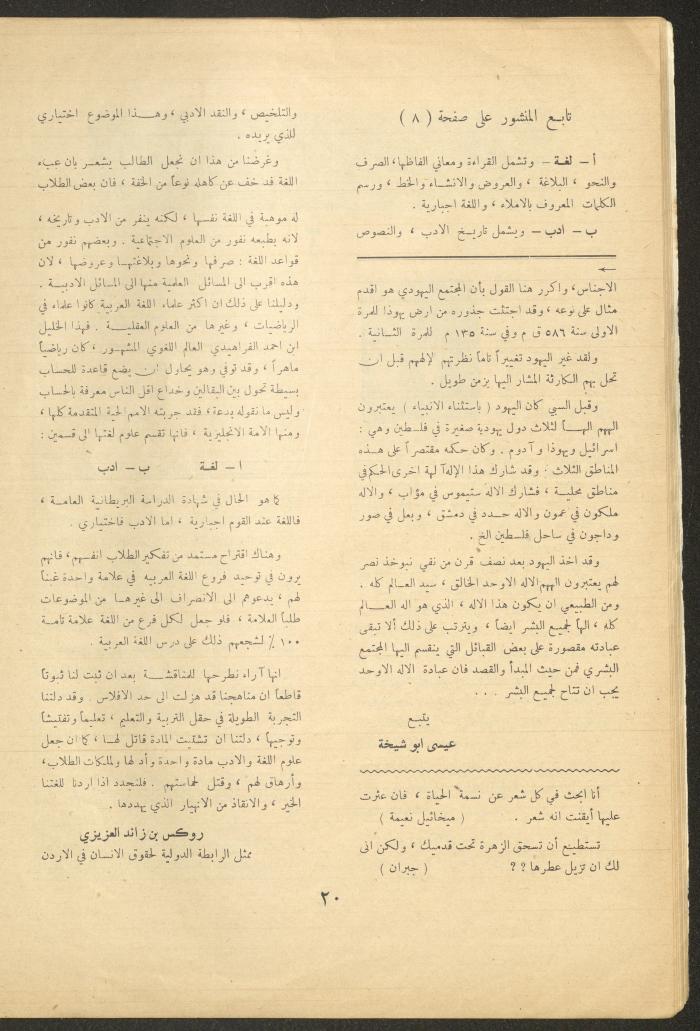 تابع المنشور على صفحة ( ٨ )
أ – لغة – وتشمل القراءة ومعاني الفاظها، الصرف
والنحو ، البلاغة ، والعروض والانشاء والخط ، ورسم
الكلمات المعروف بالاملاء ، واللغة اجبارية .
ب – ادب – ويشمل تاريخ الأدب ، والنصوص
والتلخيص ، والنقد الادبي ، وهذا الموضوع اختياري
للذي يريده .
وغرضنا من هذا ان نجعل الطالب يشعر بان عبء
اللغة قد خف عن كاهله نوعاً من الخفة ، فان بعض الطلاب
له موهبة في اللغة نفسها ، لكنه ينفر من الادب وتاريخه ،
لانه بطبعه نفور من العلوم الاجتماعية . وبعضهم نفور من
قواعد اللغة : صرفها ونحوها وبلاغتها وعروضها ، لان
هذه اقرب الى المسائل العلمية منها الى المسائل الادبية .
ودليلنا على ذلك ان اكثر علماء اللغة العربية كانوا علماء في
الرياضيات ، وغيرها من العلوم العقلية . فهذا الخليل
ابن احمد الفراهيدي العالم اللغوي المشهور ، كان رياضياً
ماهراً ، وقد توفي وهو يحاول ان يضع قاعدة للحساب
بسيطة تحول بين البقالين وخداع اقل الناس معرفة بالحساب
وليس ما نقوله بدعة ، فقد جربته الامم الحية المتقدمة كلها ،
ومنها الامة الانجليزية ، فانها تقسم علوم لغتها الى قسمين :
ا – لغة ب – ادب
كما هو الحال في شهادة الدراسة البريطانية العامة ،
فاللغة عند القوم اجبارية ، اما الادب فاختياري .
وهناك اقتراح مستمد من تفكير الطلاب انفسهم، فانهم
يرون في توحيد فروع اللغة العربيه في علامة واحدة غبناً
لهم ، يدعوهم الى الانصراف الى غيرها من الموضوعات
طلباً العلامة ، فلو جعل لكل فرع من اللغة علامة تامة
١٠٠ ٪ لشجعهم ذلك على درس اللغة العربية .
انها آراء نطرحها للمناقشة بعد ان ثبت لنا ثبوتاً
قاطعاً ان مناهجنا قد هزلت الى حد الافلاس . وقد دلتنا
التجربة الطويلة في حقل التربية والتعليم ، تعليماً وتفتيشاً
وتوجيهاً ، دلتنا ان تشتيت المادة قاتل لها ، كما ان جعل
علوم اللغة والادب مادة واحدة وأد لها ولملكات الطلاب،
وأرهاق لهم ، وقتل لحماستهم . فلنجدد اذا اردنا للغتنا
الخير ، والانقاذ من الانهيار الذي يهددها .
روكس بن زائد العزيزي
ممثل الرابطة الدولية لحقوق الانسان في الاردن
←
الاجناس، واكرر هنا القول بأن المجتمع اليهودي هو اقدم
مثال على نوعه ، وقد اجتثت جذوره من ارض يهوذا للمرة
الاولى سنة ٥٨٦ ق م وفي سنة ١٣٥ م للمرة الثانية .
ولقد غير اليهود تغييراً تاماً نظرتهم لإلههم قبل ان
تحل بهم الكارثة المشار اليها بزمن طويل .
وقبل السبي كان اليهود ( باستثناء الانبياء ) يعتبرون
الههم الهاً لثلاث دول يهودية صغيرة في فلسطين وهي :
اسرائيل ويهوذا وآدوم . وكان حكمه مقتصراً على هذه
المناطق الثلاث . وقد شارك هذا الإله آلهة اخرى الحكم في
مناطق محلية ، فشارك الاله ستيموس في مؤاب ، والاله
ملكون في عمون والاله حدد في دمشق ، وبعل في صور
وداجون في ساحل فلسطين الخ .
وقد اخذ اليهود بعد نصف قرن من نفي نبوخذ نصر
لهم يعتبرون الههم الاله الاوحد الخالق ، سيد العالم كله .
ومن الطبيعي ان يكون هذا الاله ، الذي هو اله العالم
كله ، الهاً لجميع البشر ايضاً ، ويترتب على ذلك ألا تبقى
عبادته مقصورة على بعض القبائل التي ينقسم اليها المجتمع
البشري فمن حيث المبدأ والقصد فان عبادة الاله الاوحد
يجب ان تتاح لجميع البشر . . .
يتبع
عيسى ابو شيخة
أنا ابحث في كل شعر عن نسمة الحياة ، فان عثرت
عليها أيقنت انه شعر . ( ميخائيل نعيمة )
تستطيع أن تسحق الزهرة تحت قدميك ، ولكن انى
لك ان تزيل عطرها ؟ ؟ ( جبران )
٢٠